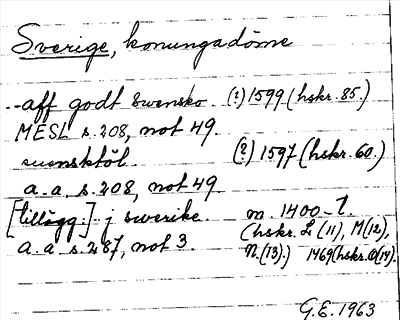 Sverige, konungadöme
--aff godt swensko (?) 1599 (hskr. 85.)
MESL s. 208, not 49.
suensktöl. (?) 1597 (hskr. 60.)
a.a. s. 208, not 49
[tillägg:]--j swerike. m. 1400-t.
(hskr. L (11), M (12),
a.a. s. 287, not 3. N. (13).) 1469 (hskr. O (14).
G.E. 1963